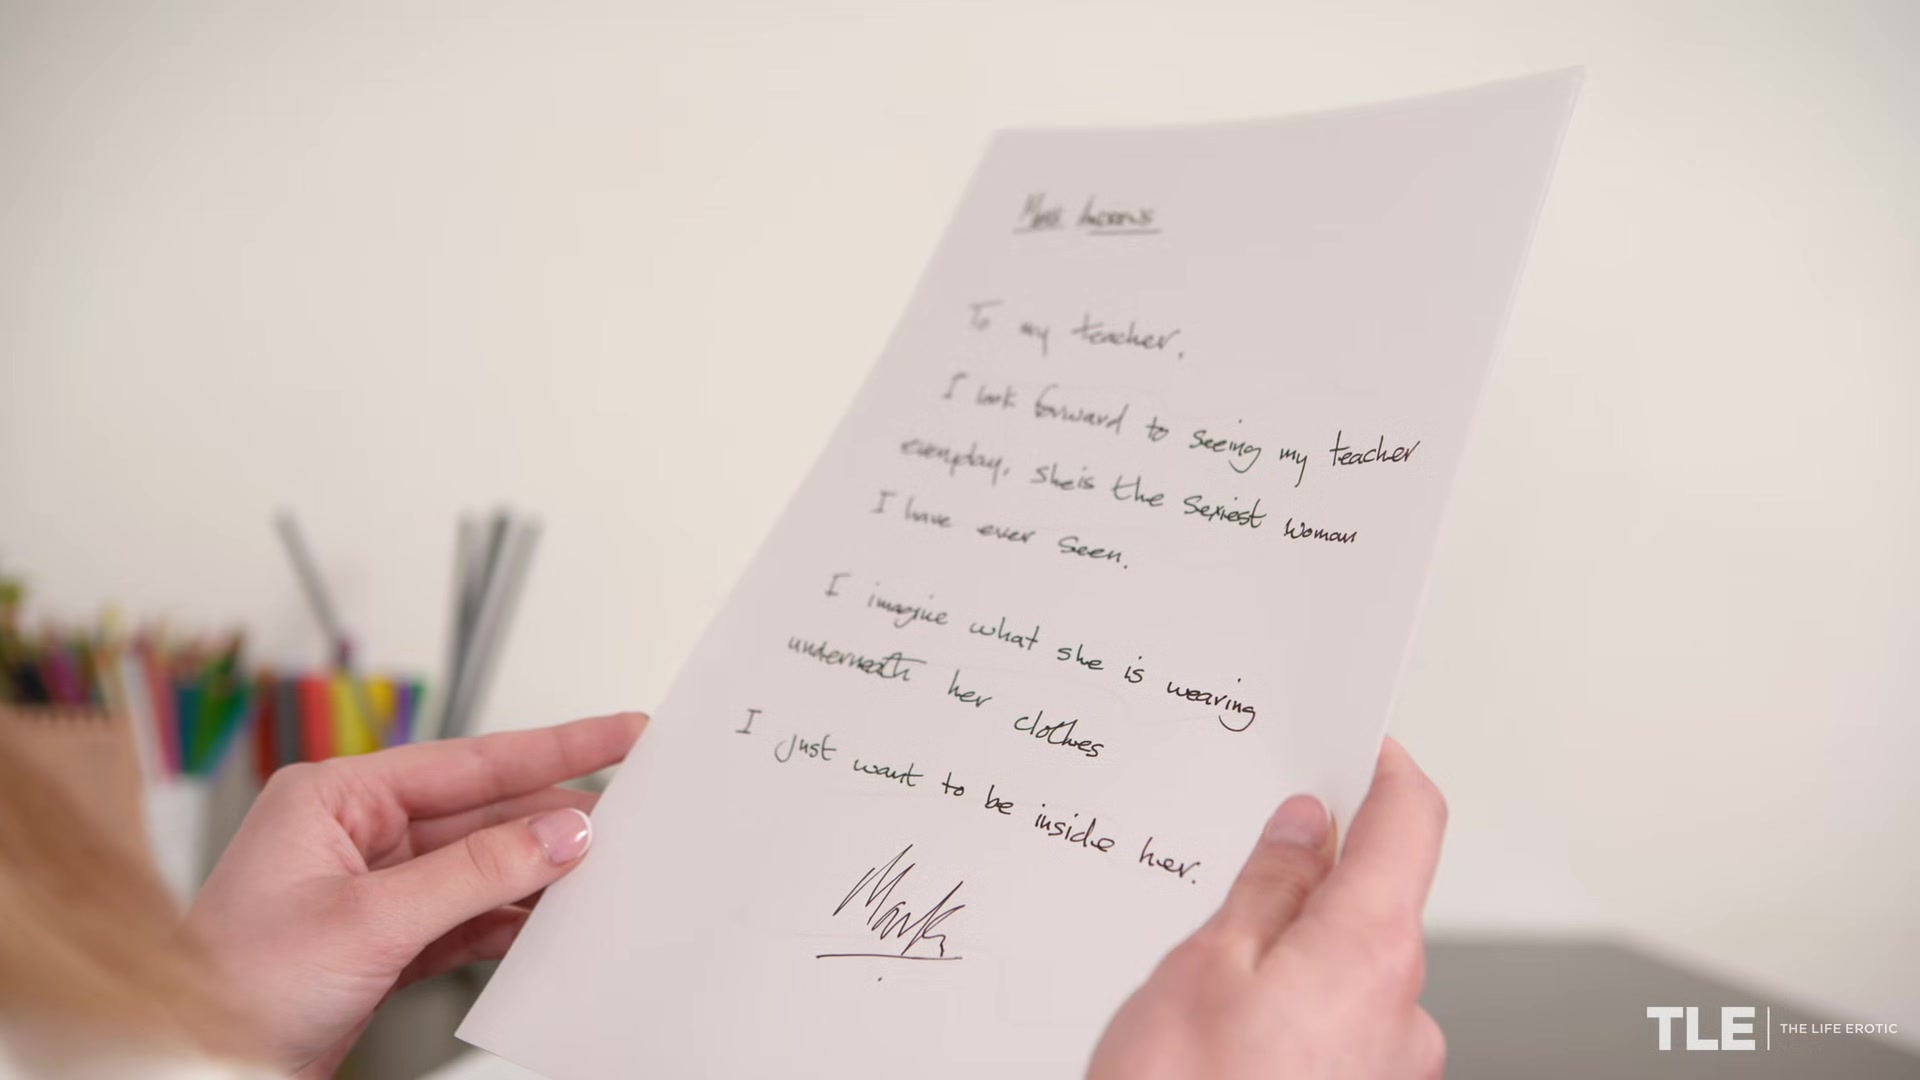 To my teacher.
I look forward to seeing my teacher
everyday, she is the sexiest woman
I have ever seen.
I imagine what she is wearing
underneath her clothes
I just want to be inside her.
Mark
TLE | THE LIFE EROTIC